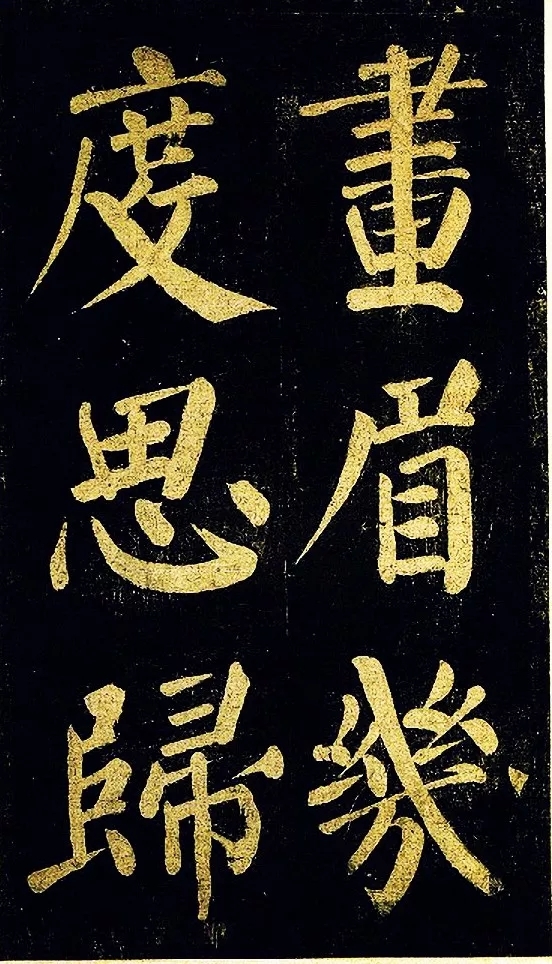 畫眉幾
度思歸